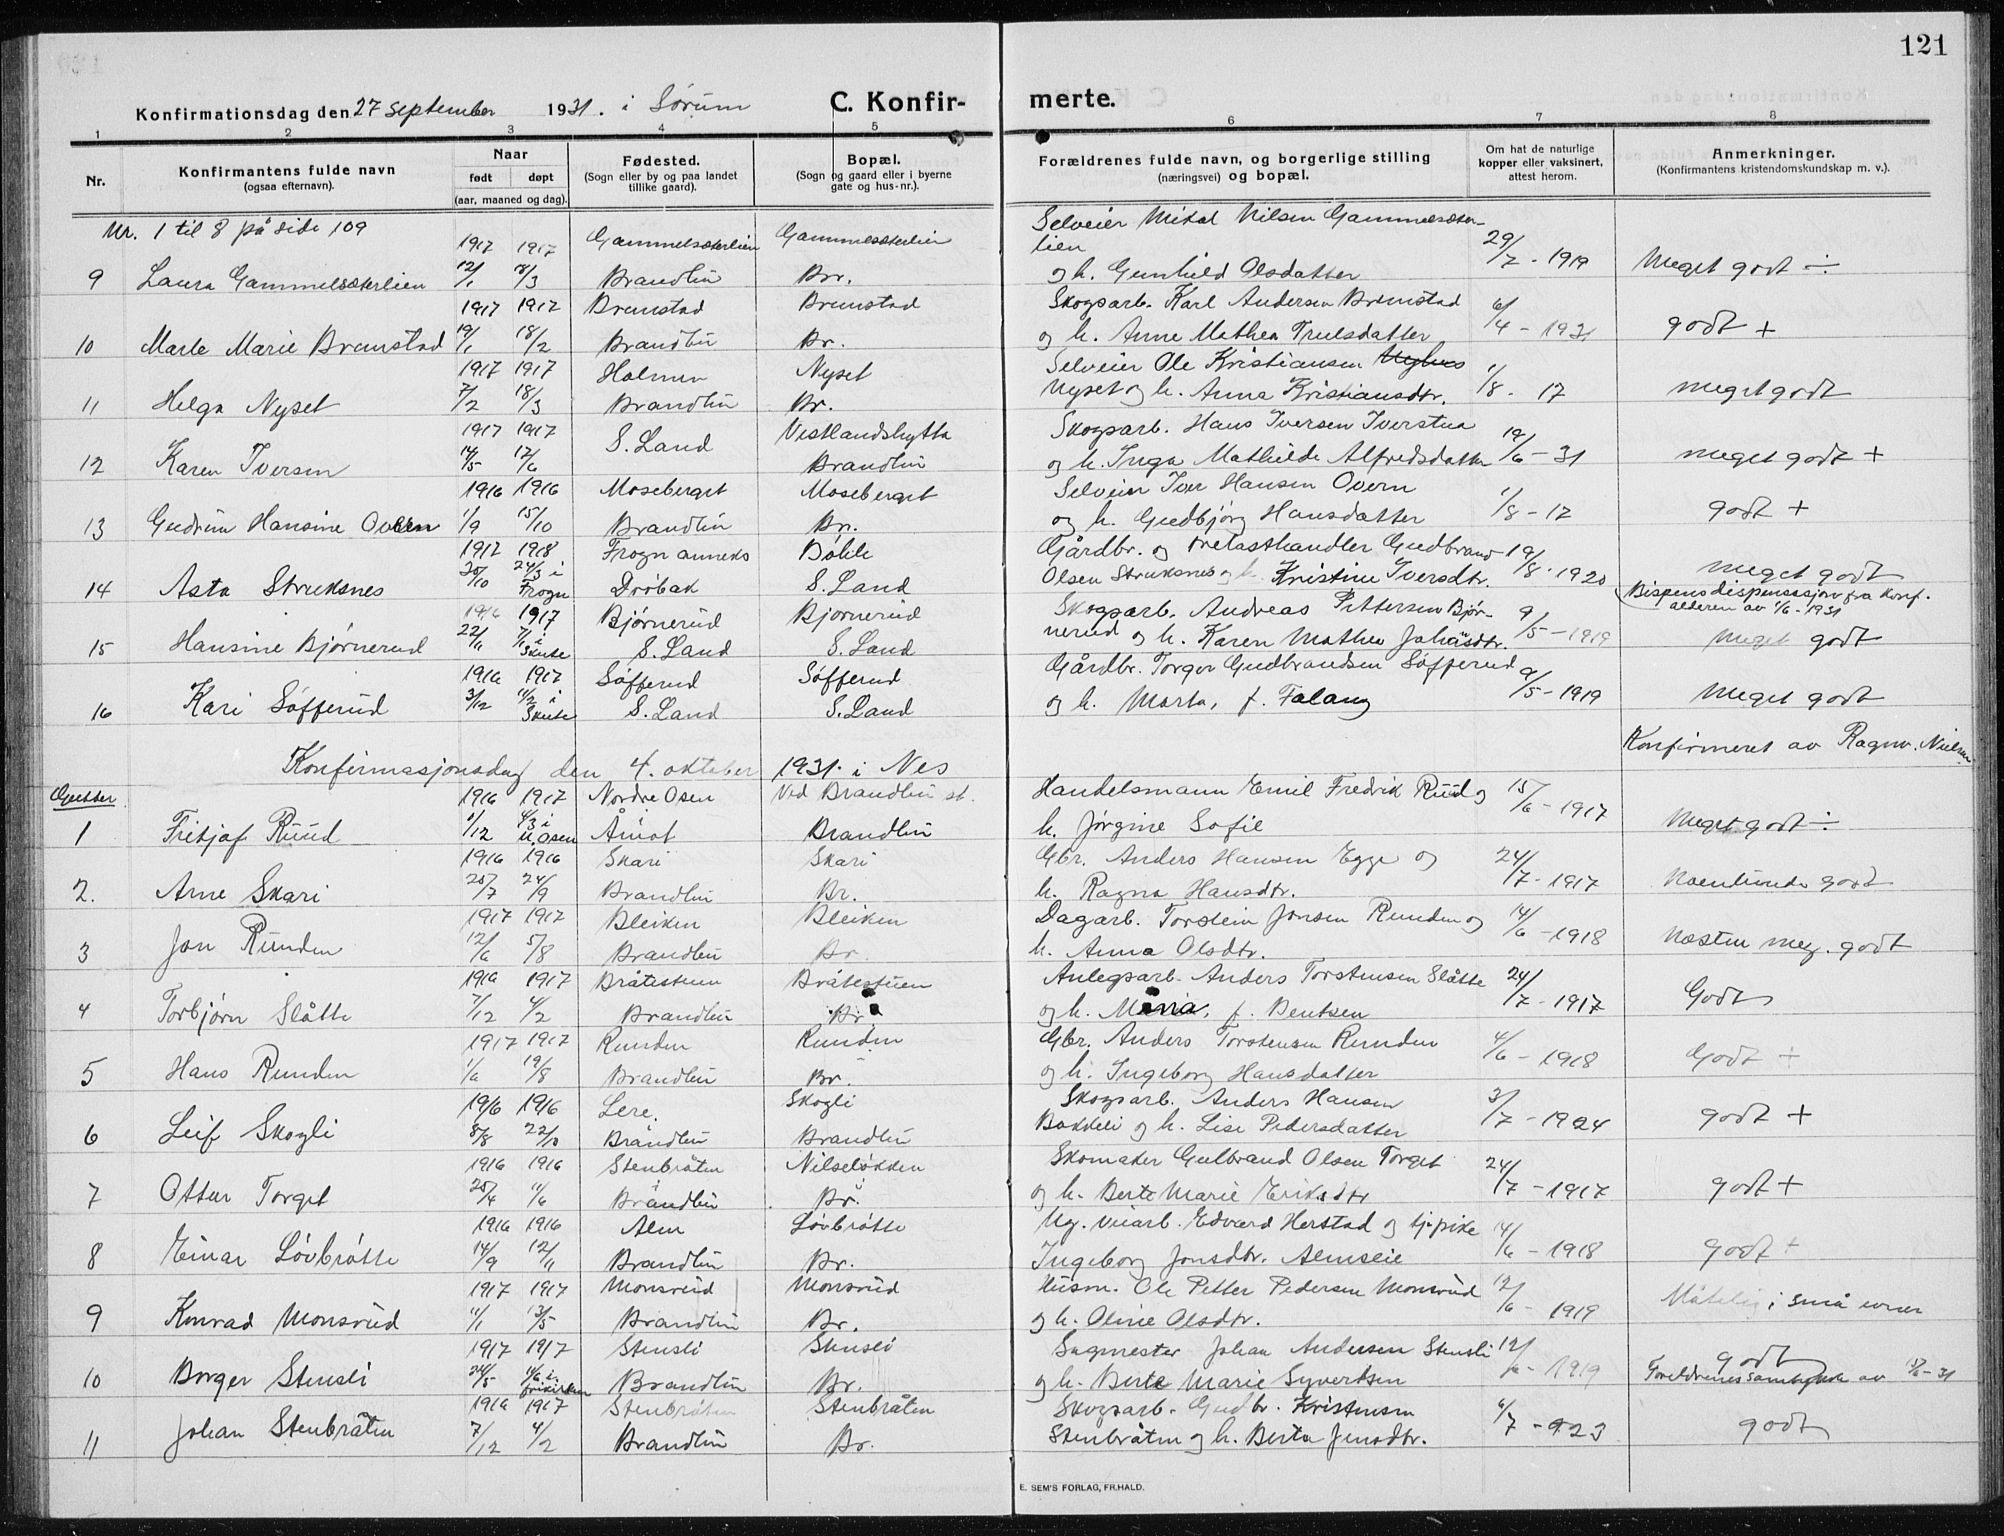 121
Konfirmationsdag den 27 september 1931. i Sørum C. Konfirmerte.
1 2 3 4 5 6 7 8
Nr. Konfirmantens fulde navn (ogsaa efternavn). Naar født døpt (aar, maaned og dag). Fødested. (Sogn eller by og paa landet tillike gaard). Bopæl. (Sogn og gaard eller i byerne gate og hus-nr.). Forældrenes fulde navn, og borgerlige stilling (næringsvei) og bopæl. Om hat de naturlige kopper eller vaksinert, attest herom. Anmerkninger. (Konfirmantens kristendomskundskap m. v.).
Nr. 1 til 8 på side 109
1917 1917 Gammelsæterlien Gammelsæterlien Selveier Mikal Nilsen Gammelsæterlien 29/7 - 1919
9 Laura Gammelsæterlien 12/1 18/3 Brandbu Br. og h. Gunhild Olsdatter Meget godt ÷
1917 1917 Bremstad Bremstad Skogsarb. Karl Andersen Bremstad 6/4 - 1931
10 Marle Marie Bremstad 19/1 18/2 Brandbu Br. og h. Anne Mathea Trulsdatter godt +
1917 1917 Holmen Nyset Selveier Ole Kristiansen
11 Helga Nyset 7/2 18/3 Brandbu Br. Nyset og h. Anna Kristiansdtr. 1/8 - 17 meget godt
1917 1917 S. Land Vestlandshytta Skogsarb. Hans Iversen Iverstua
12 Karen Iversen 14/5 17/6 Brandbu og h. Inga Mathilde Alfredsdatter 19/6 - 31 meget godt +
1916 1916 Moseberget Moseberget Selveier Iver Hansen Overn
13 Gudrun Hansine Overn 1/9 15/10 Brandbu Br. og h. Gudbjørg Hansdatter 1/8 - 17 godt +
1917 1918 Frogn anneks Bøhle Gårdbr. og trelasthandler Gudbrand 19/8 - 1920
14 Asta Struksnes 20/10 24/3 i Frogn Drøbak S. Land Olsen Struksnes og h. Kristine Iversdtr. meget godt
Bispens dispensasjon fra konf. alderen av 1/6 - 1931
1916 1917 Bjørnerud Bjørnerud Skogsarb. Andreas Pettersen Bjør- 9/5 - 1919
15 Hansine Bjørnerud 22/11 7/1 i Skute S. Land S. Land nerud og h. Karen Mathea Johansdtr. Meget godt
1916 1917 Søfferud Søfferud Gårdbr. Torger Gudbrandsen Søfferud 9/5 - 1919
16 Kari Søfferud 3/12 11/2 i Skute S. Land S. Land og h. Marta, f. Falang Meget godt
Konfirmasjonsdag den 4. oktober 1931. i Nes Konfirmeret av Ragnv. Nielsen
Gutter 1916 1917 Nordre Osen Ved Brandbu st. Handelsmann Emil Fredrik Ruud og 15/6 - 1917
1 Fritjof Ruud 1/12 4/3 i N. Osen Åmot Brandbu h. Jørgine Sofie Meget godt ÷
1916 1916 Skari Skari Gbr. Anders Hansen Egge og 24/7 - 1917
2. Arne Skari 25/7 24/9 Brandbu Br. h. Ragna Hansdtr. Noenlunde godt
1917 1917 Bleiken Bleiken Dagarb. Torstein Jonsen Runden og 14/6 - 1918
3 Jon Runden 12/6 5/8 Brandbu Br. h. Anna Olsdtr. Næsten meg. godt
1916 1917 Bråtestuen Bråtestuen Anlegsarb. Anders Torstensen Slåtte 24/7 - 1917
4 Torbjørn Slåtte 7/12 4/2 Brandbu Br. og h. Maria, f. Bentsen Godt
1917 1917 Runden Runden Gbr. Anders Torstensen Runden 4/6 - 1918
5 Hans Runden 1/6 19/8 Brandbu Br. og h. Ingeborg Hansdatter Godt ÷
1916 1916 Lere Skogli Skogsarb. Anders Hansen 3/7 - 1924
6 Leif Skogli 8/8 22/10 Brandbu Brandbu Bakkeli og h. Lise Pedersdatter godt +
1916 1916 Stenbråten Nilseløkken Skomaker Gulbrand Olsen Torget 24/7 - 1917
7 Ottar Torget 25/4 11/6 Brandbu Br. og h. Berte Marie Eriksdtr godt +
1916 1916 Alm Løvbrøtte Ug. veiarb. Edvard Herstad og tj.pike 14/6 - 1918
8 Einar Løvbrøtte 14/9 12/11 Brandbu Br. Ingeborg Jonsdtr. Almseie godt +
1917 1917 Monsrud Monsrud Husm. Ole Petter Pedersen Monsrud 12/6 - 1919
9 Konrad Monsrud 11/1 13/5 Brandbu Br. og h. Oline Olsdtr. Måtelig i små evner
1917 1917 Stensli Stensli Sagmester Johan Andersen Stensli 12/6 - 1919
10 Borger Stensli 24/5 frikirken Brandbu Br. og h. Berte Marie Syvertsen godt
Foreldrenes samtykke av 5/6 - 31
1916 1917 Stenbråten Stenbråten Skogsarb. Gudbr. Kristensen 6/7 - 923
11 Johan Stenbråten 7/12 4/2 Brandbu Br. Stenbråten og h. Berta Jensdtr. godt
E. SEM'S FORLAG, FR.HALD.